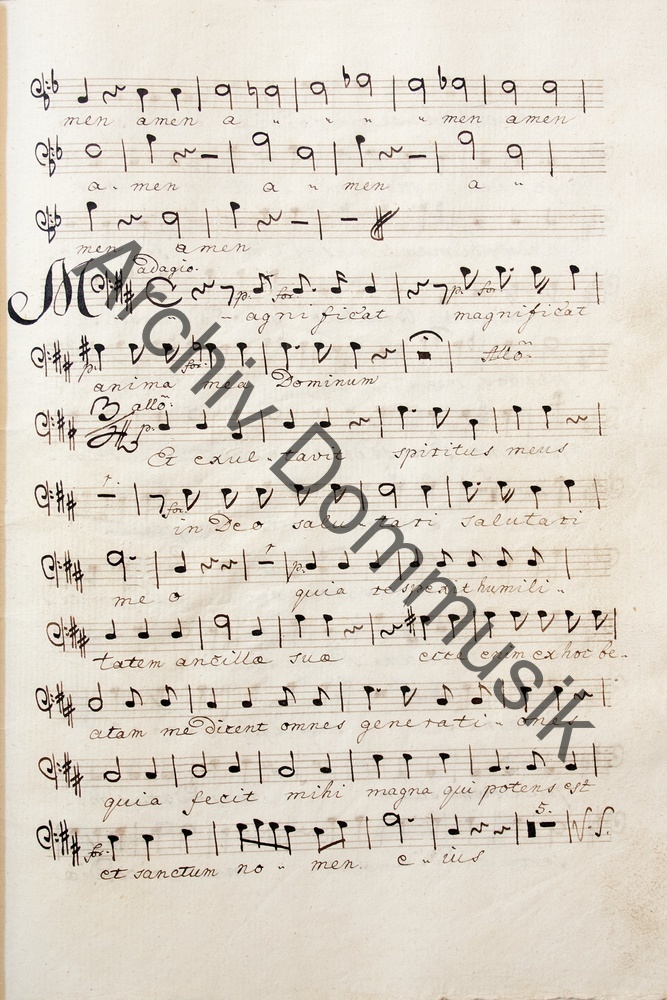 men amen a " " " " men amen
a - men a " men a "
men amen
adagio.
M p. for.
" " - agnificat magnificat
p. for. Allo:
anima mea Dominum
3 allo: p.
Et exul - tavit spiritus meus
for.
in Deo salu - tari salutari
p.
me o quia respexit humili "
tatem ancillæ suæ ecce enim ex hoc be -
atam me Dicent omnes generati - ones
quia fecit mihi magna qui potens est
for. 5.
et sanctum no " men e " ius
Archiv Dommusik